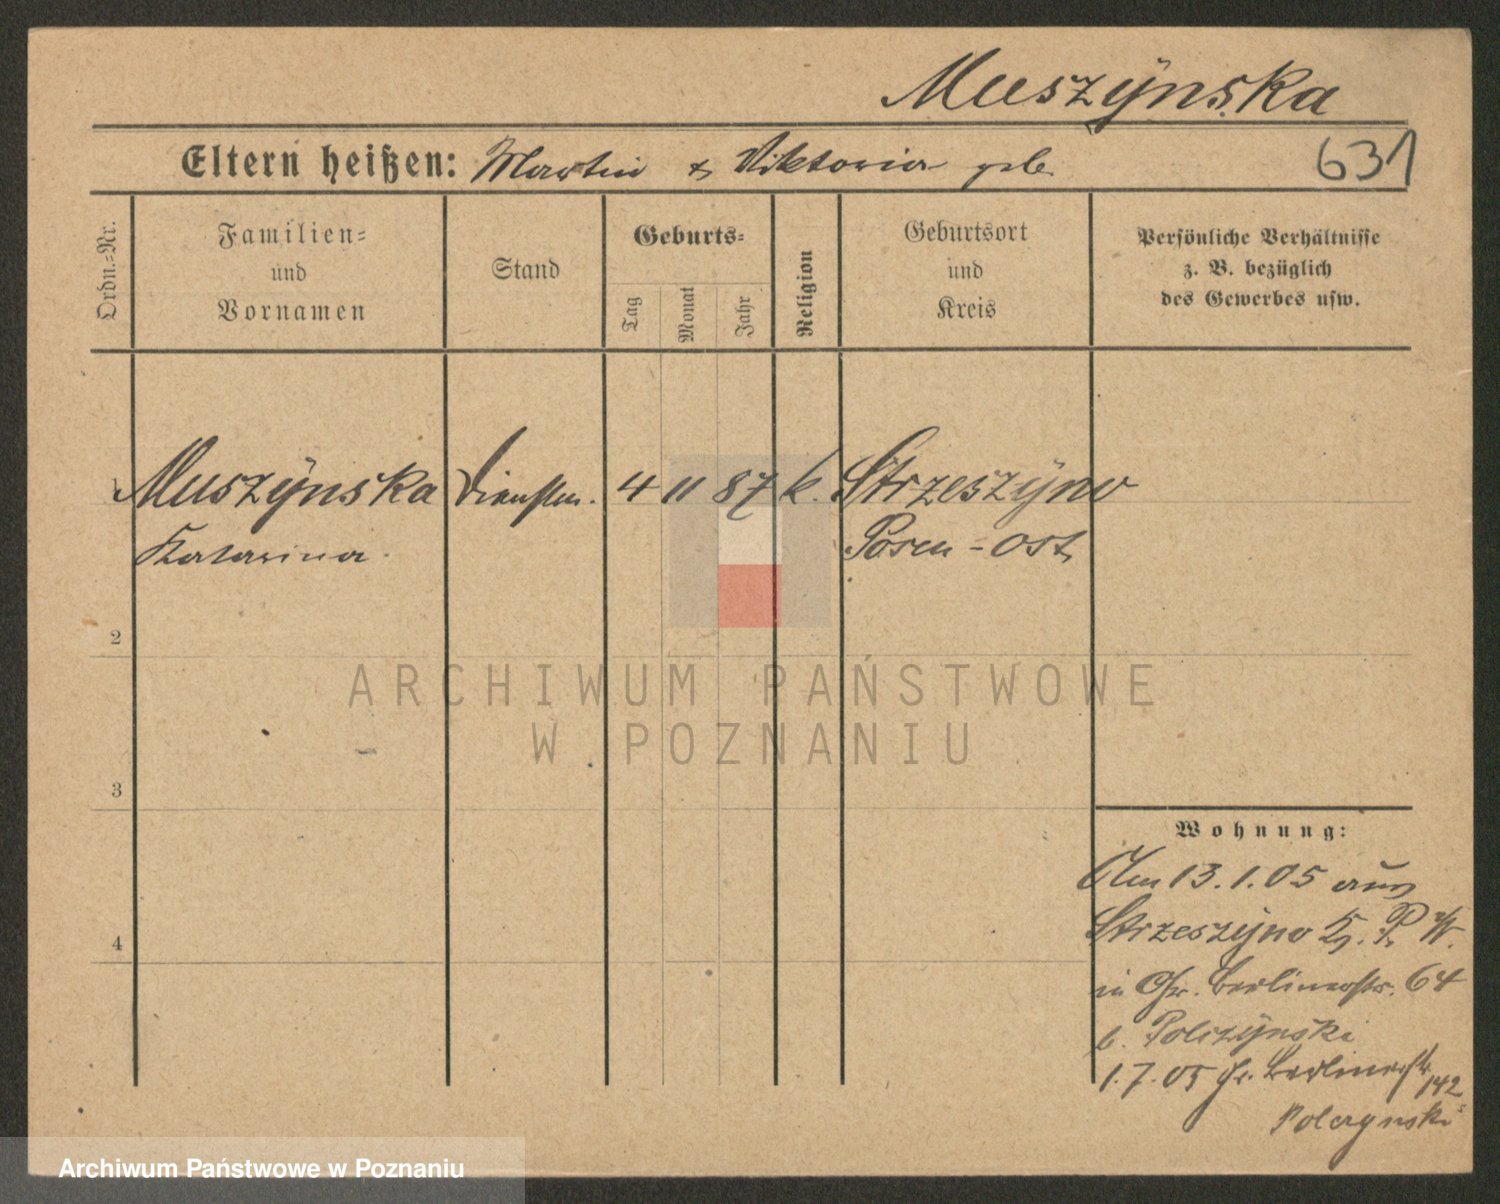 Muszÿnska
Eltern heißen: Martin & Viktoria geb.
631
Ordn.-Nr.
Familien-
und
Vornamen
Stand
Geburts-
Tag
Monat
Jahr
Religion
Geburtsort
und
Kreis
Persönliche Verhältnisse
z. B. bezüglich
des Gewerbes usw.
1 Muszÿnska Dienstm. 4 11 87 k. Strzeszÿno
Katarina Posen-Ost
2
3
4
Wohnung:
Am 13.1.05 aus
Strzeszÿno K. P. W.
in Gr. Berlinerstr. 64
b. Polczÿnski
1.7.05 Gr. Berlinerstr. 142
Polczynski
ARCHIWUM PAŃSTWOWE
W POZNANIU
Archiwum Państwowe w Poznaniu